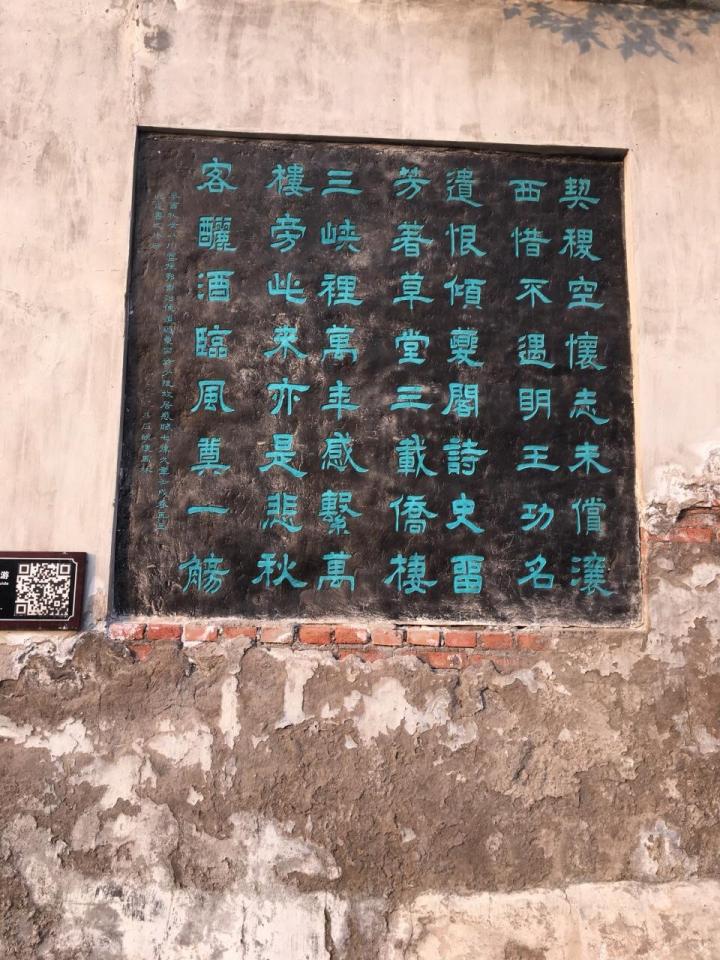 契稷空懷志未償瀼
西惜不遇明王功名
遺恨傾夔閣詩史留
芳著草堂三載僑棲
三峽裡萬年感繫萬
樓旁此來亦是悲秋
客釃酒臨風奠一觴
游